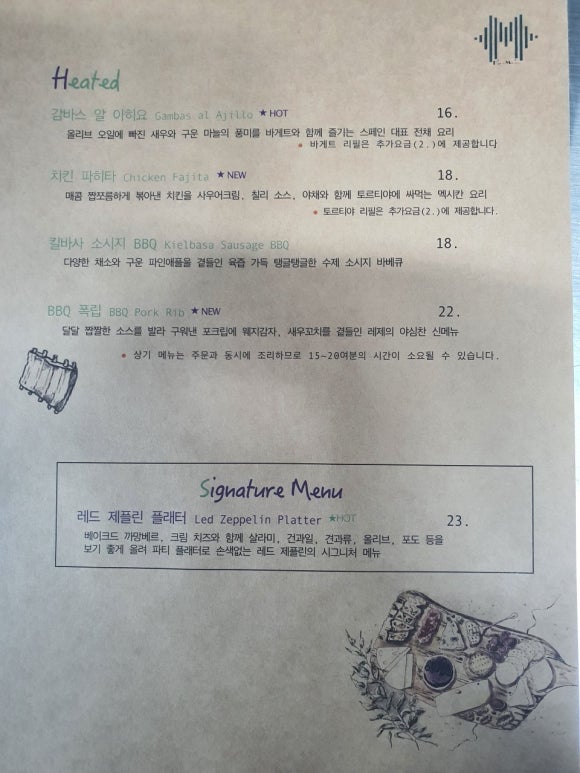 Heated
감바스 알 아히요 Gambas al Ajillo ★HOT 16.
올리브 오일에 빠진 새우와 구운 마늘의 풍미를 바게트와 함께 즐기는 스페인 대표 전채 요리
● 바게트 리필은 추가요금(2.)에 제공합니다
치킨 파히타 Chicken Fajita ★NEW 18.
매콤 짭쪼름하게 볶아낸 치킨을 사우어크림, 칠리 소스, 야채와 함께 토르티야에 싸먹는 멕시칸 요리
● 토르티야 리필은 추가요금(2.)에 제공합니다.
킬바사 소시지 BBQ Kielbasa Sausage BBQ 18.
다양한 채소와 구운 파인애플을 곁들인 육즙 가득 탱글탱글한 수제 소시지 바베큐
BBQ 폭립 BBQ Pork Rib ★NEW 22.
달달 짭짤한 소스를 발라 구워낸 포크립에 웨지감자, 새우꼬치를 곁들인 레제의 야심찬 신메뉴
● 상기 메뉴는 주문과 동시에 조리하므로 15~20여분의 시간이 소요될 수 있습니다.
Signature Menu
레드 제플린 플래터 Led Zeppelin Platter ★HOT 23.
베이크드 까망베르, 크림 치즈와 함께 살라미, 건과일, 견과류, 올리브, 포도 등을
보기 좋게 올려 파티 플래터로 손색없는 레드 제플린의 시그니처 메뉴